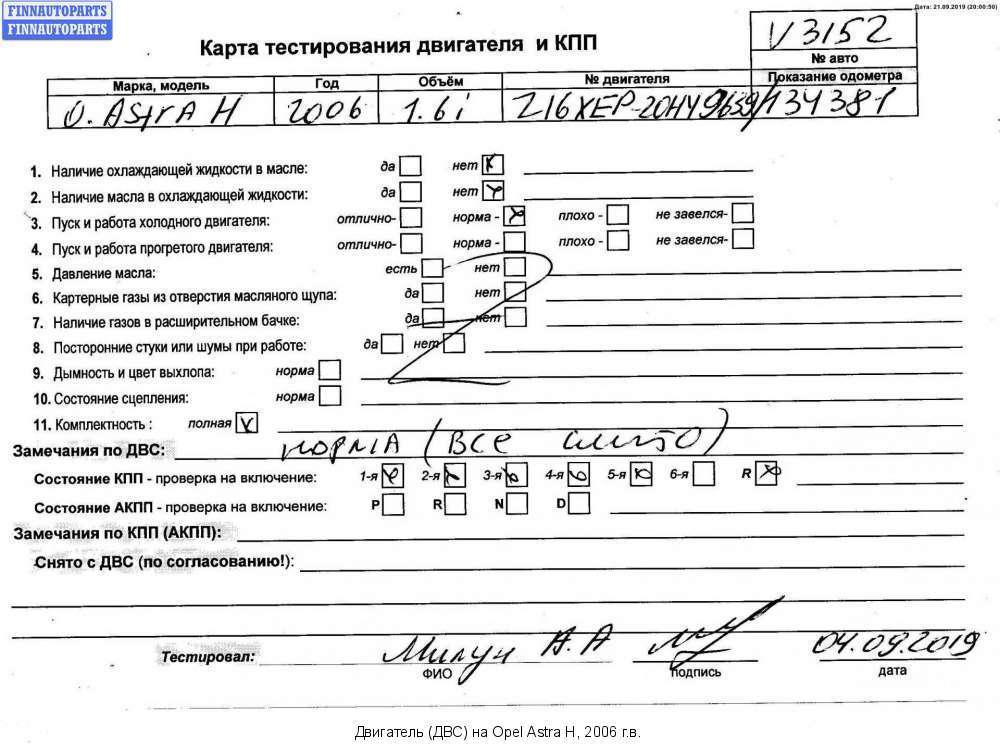 FINNAUTOPARTS
FINNAUTOPARTS
Дата: 21.09.2019 (20:00:50)
V3152
Карта тестирования двигателя и КПП
№ авто
Марка, модель Год Объём № двигателя Показание одометра
O. AStrA H 2006 1.6i Z16XEP-20HY9639 134381
1. Наличие охлаждающей жидкости в масле: да нет
2. Наличие масла в охлаждающей жидкости: да нет
3. Пуск и работа холодного двигателя: отлично- норма - плохо - не завелся-
4. Пуск и работа прогретого двигателя: отлично- норма - плохо - не завелся-
5. Давление масла: есть нет
6. Картерные газы из отверстия масляного щупа: да нет
7. Наличие газов в расширительном бачке: да нет
8. Посторонние стуки или шумы при работе: да нет
9. Дымность и цвет выхлопа: норма
10. Состояние сцепления: норма
11. Комплектность : полная V
Замечания по ДВС: норма (все слито)
Состояние КПП - проверка на включение: 1-я 2-я 3-я 4-я 5-я 6-я R
Состояние АКПП - проверка на включение: P R N D
Замечания по КПП (АКПП):
Снято с ДВС (по согласованию!):
Тестировал: Милун А.А 04.09.2019
ФИО подпись дата
Двигатель (ДВС) на Opel Astra H, 2006 г.в.